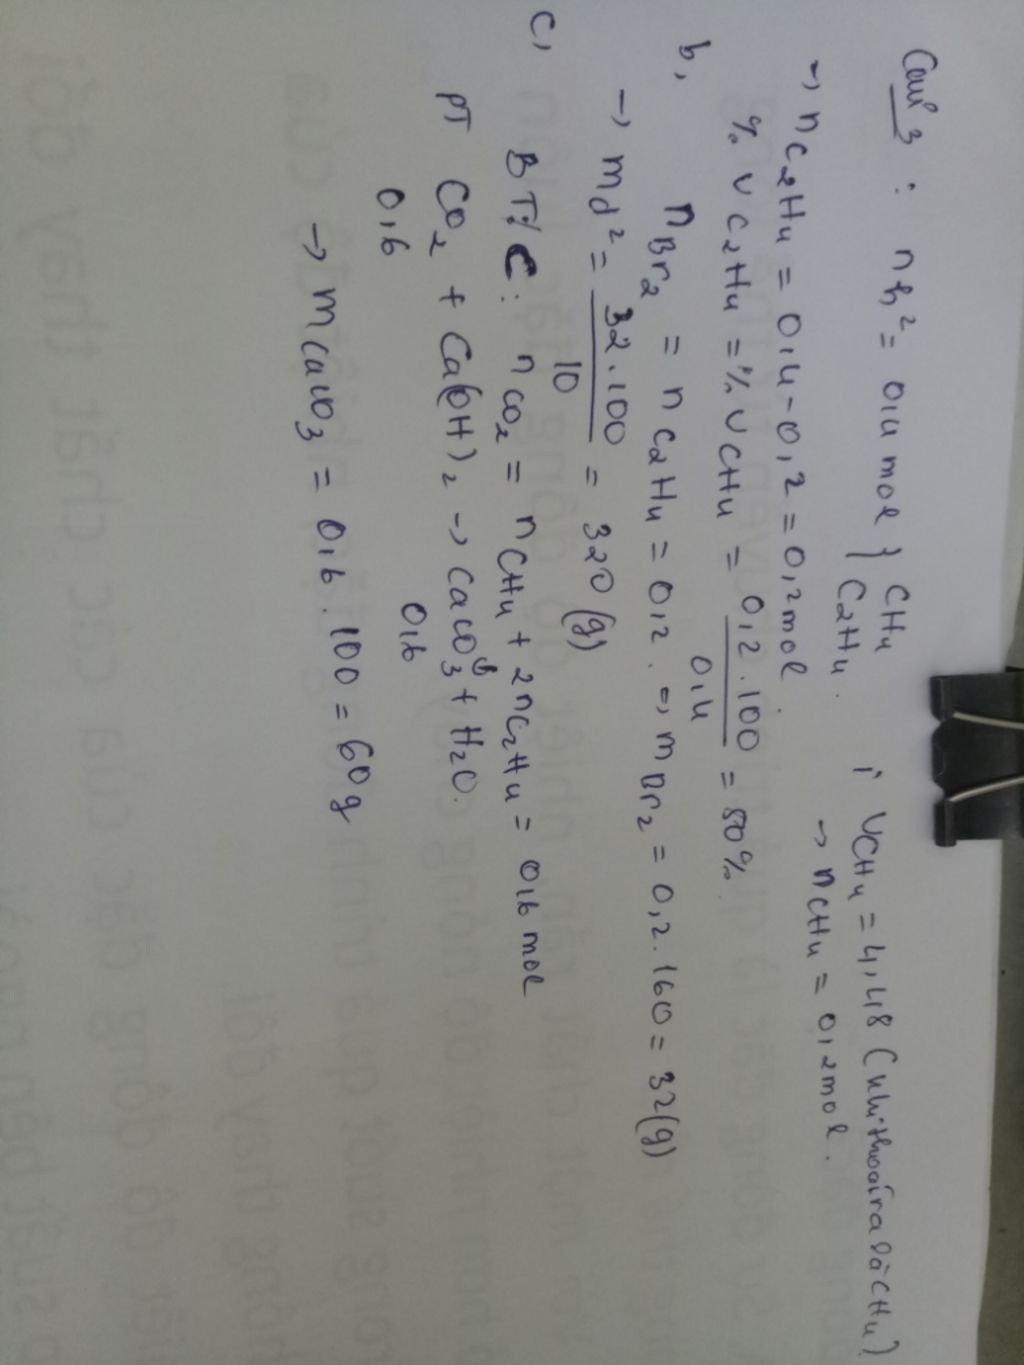 Câu 3 : n h² = 0,4 mol } CH4 ; VCH4 = 4,48 (khí thoát ra là CH4)
C2H4. → nCH4 = 0,2 mol.
→ nC2H4 = 0,4 - 0,2 = 0,2 mol
% VC2H4 = % VCH4 = 0,2.100 / 0,4 = 50%.
b, nBr2 = nC2H4 = 0,2. => mBr2 = 0,2.160 = 32(g)
→ md² = 32.100 / 10 = 320 (g)
c, BT/C: nCO2 = nCH4 + 2nC2H4 = 0,6 mol
PT CO2 + Ca(OH)2 → CaCO3↓ + H2O.
0,6 0,6
→ mCaCO3 = 0,6.100 = 60g